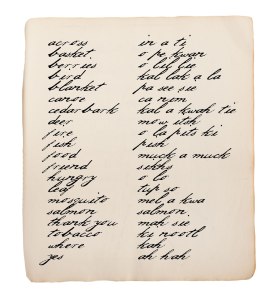 across in a ti
basket o pe kwan
berries o lil lie
bird kal lak a la
blanket pa see sie
canoe ca nim
cedar bark kal a kwah tie
deer mow itsh
fire o la pits ki
fish pish
food muck a muck
friend sikhs
hungry o lo
leg tip so
mosquito mel a kwa
salmon salmon
thank you mah sie
tobacco ki nootl
where kah
yes ah hah